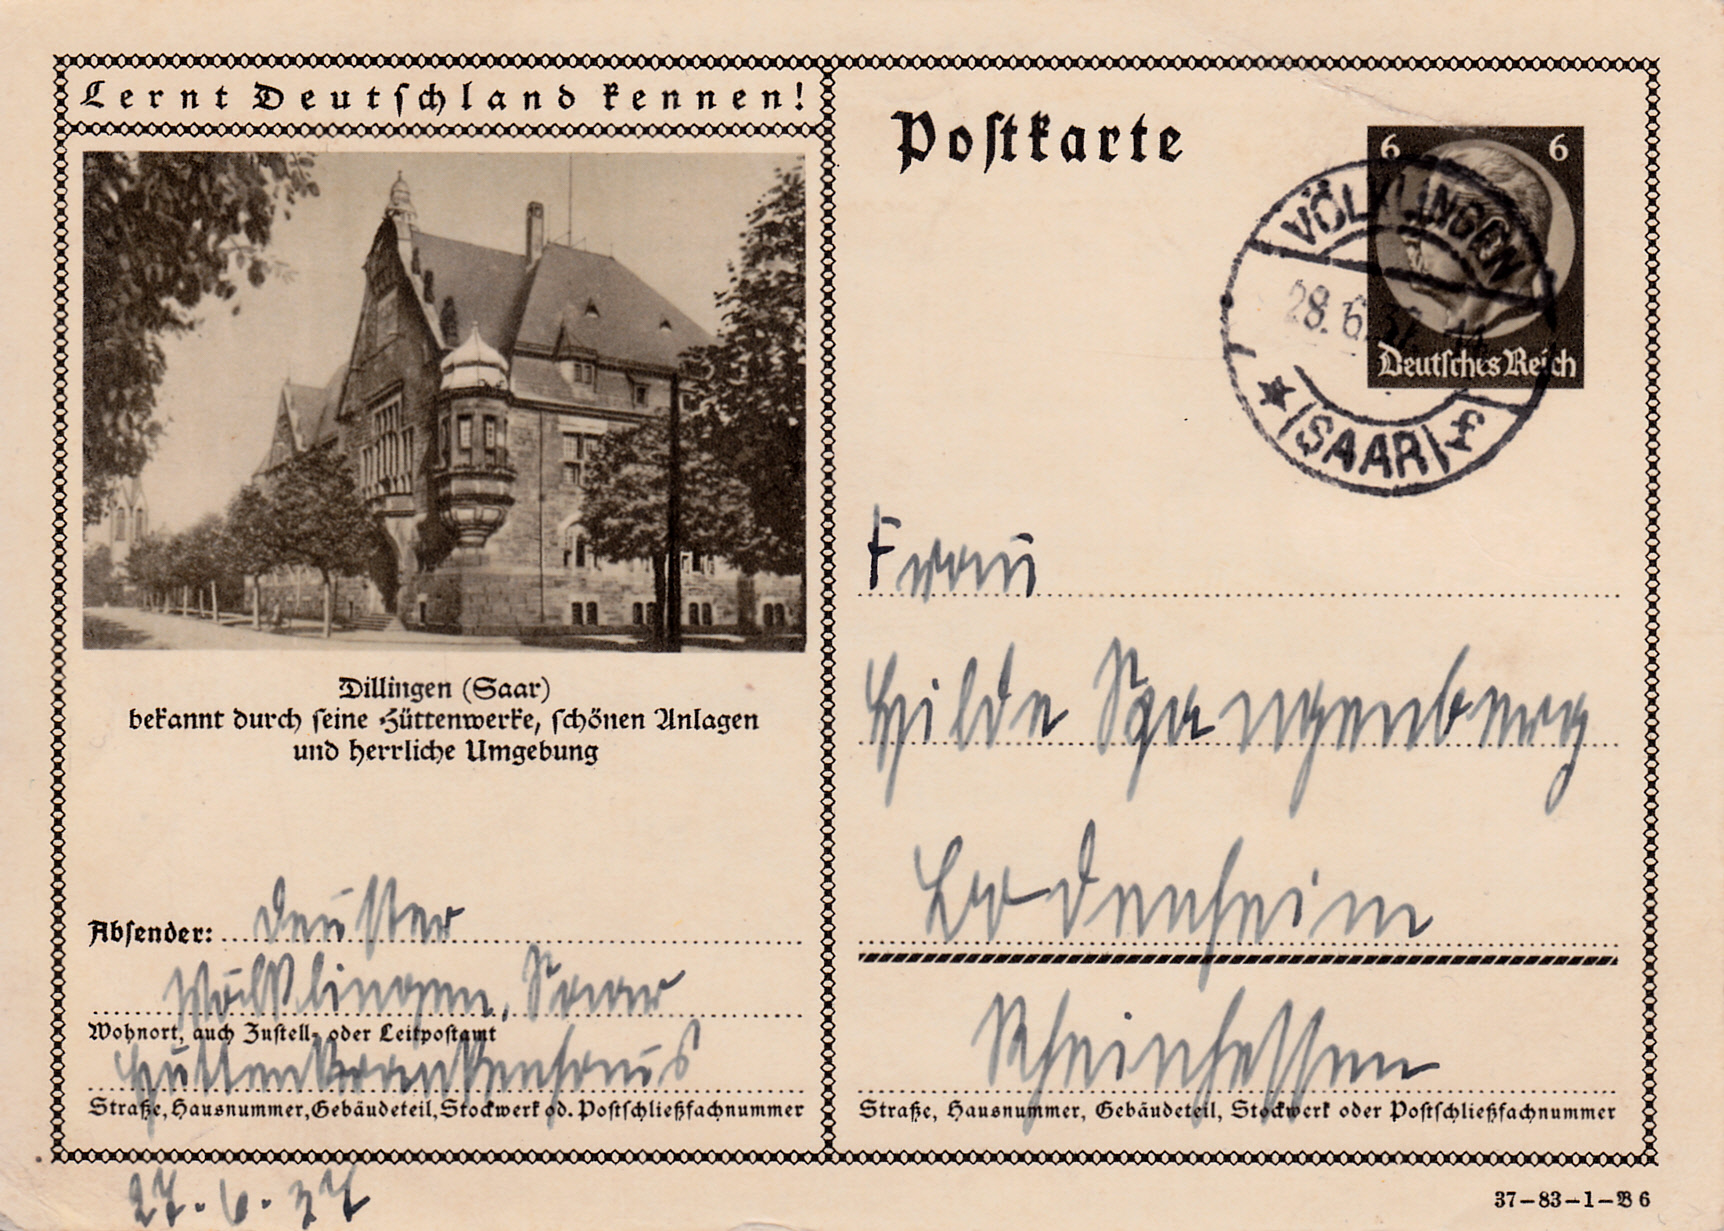 Lernt Deutschland kennen!
Dillingen (Saar)
bekannt durch seine Hüttenwerke, schönen Anlagen
und herrliche Umgebung
Absender: Deuster
Völklingen, Saar
Wohnort, auch Zustell- oder Leitpostamt
Hüttenkrankenhaus
Straße, Hausnummer, Gebäudeteil, Stockwerk od. Postschließfachnummer
27.6.37
Postkarte
6 6
Deutsches Reich
VÖLKLINGEN
28.6.37
(SAAR) f
Frau
Hilde Spangenberg
Bodenheim
Rheinhessen
Straße, Hausnummer, Gebäudeteil, Stockwerk oder Postschließfachnummer
37-83-1-B 6